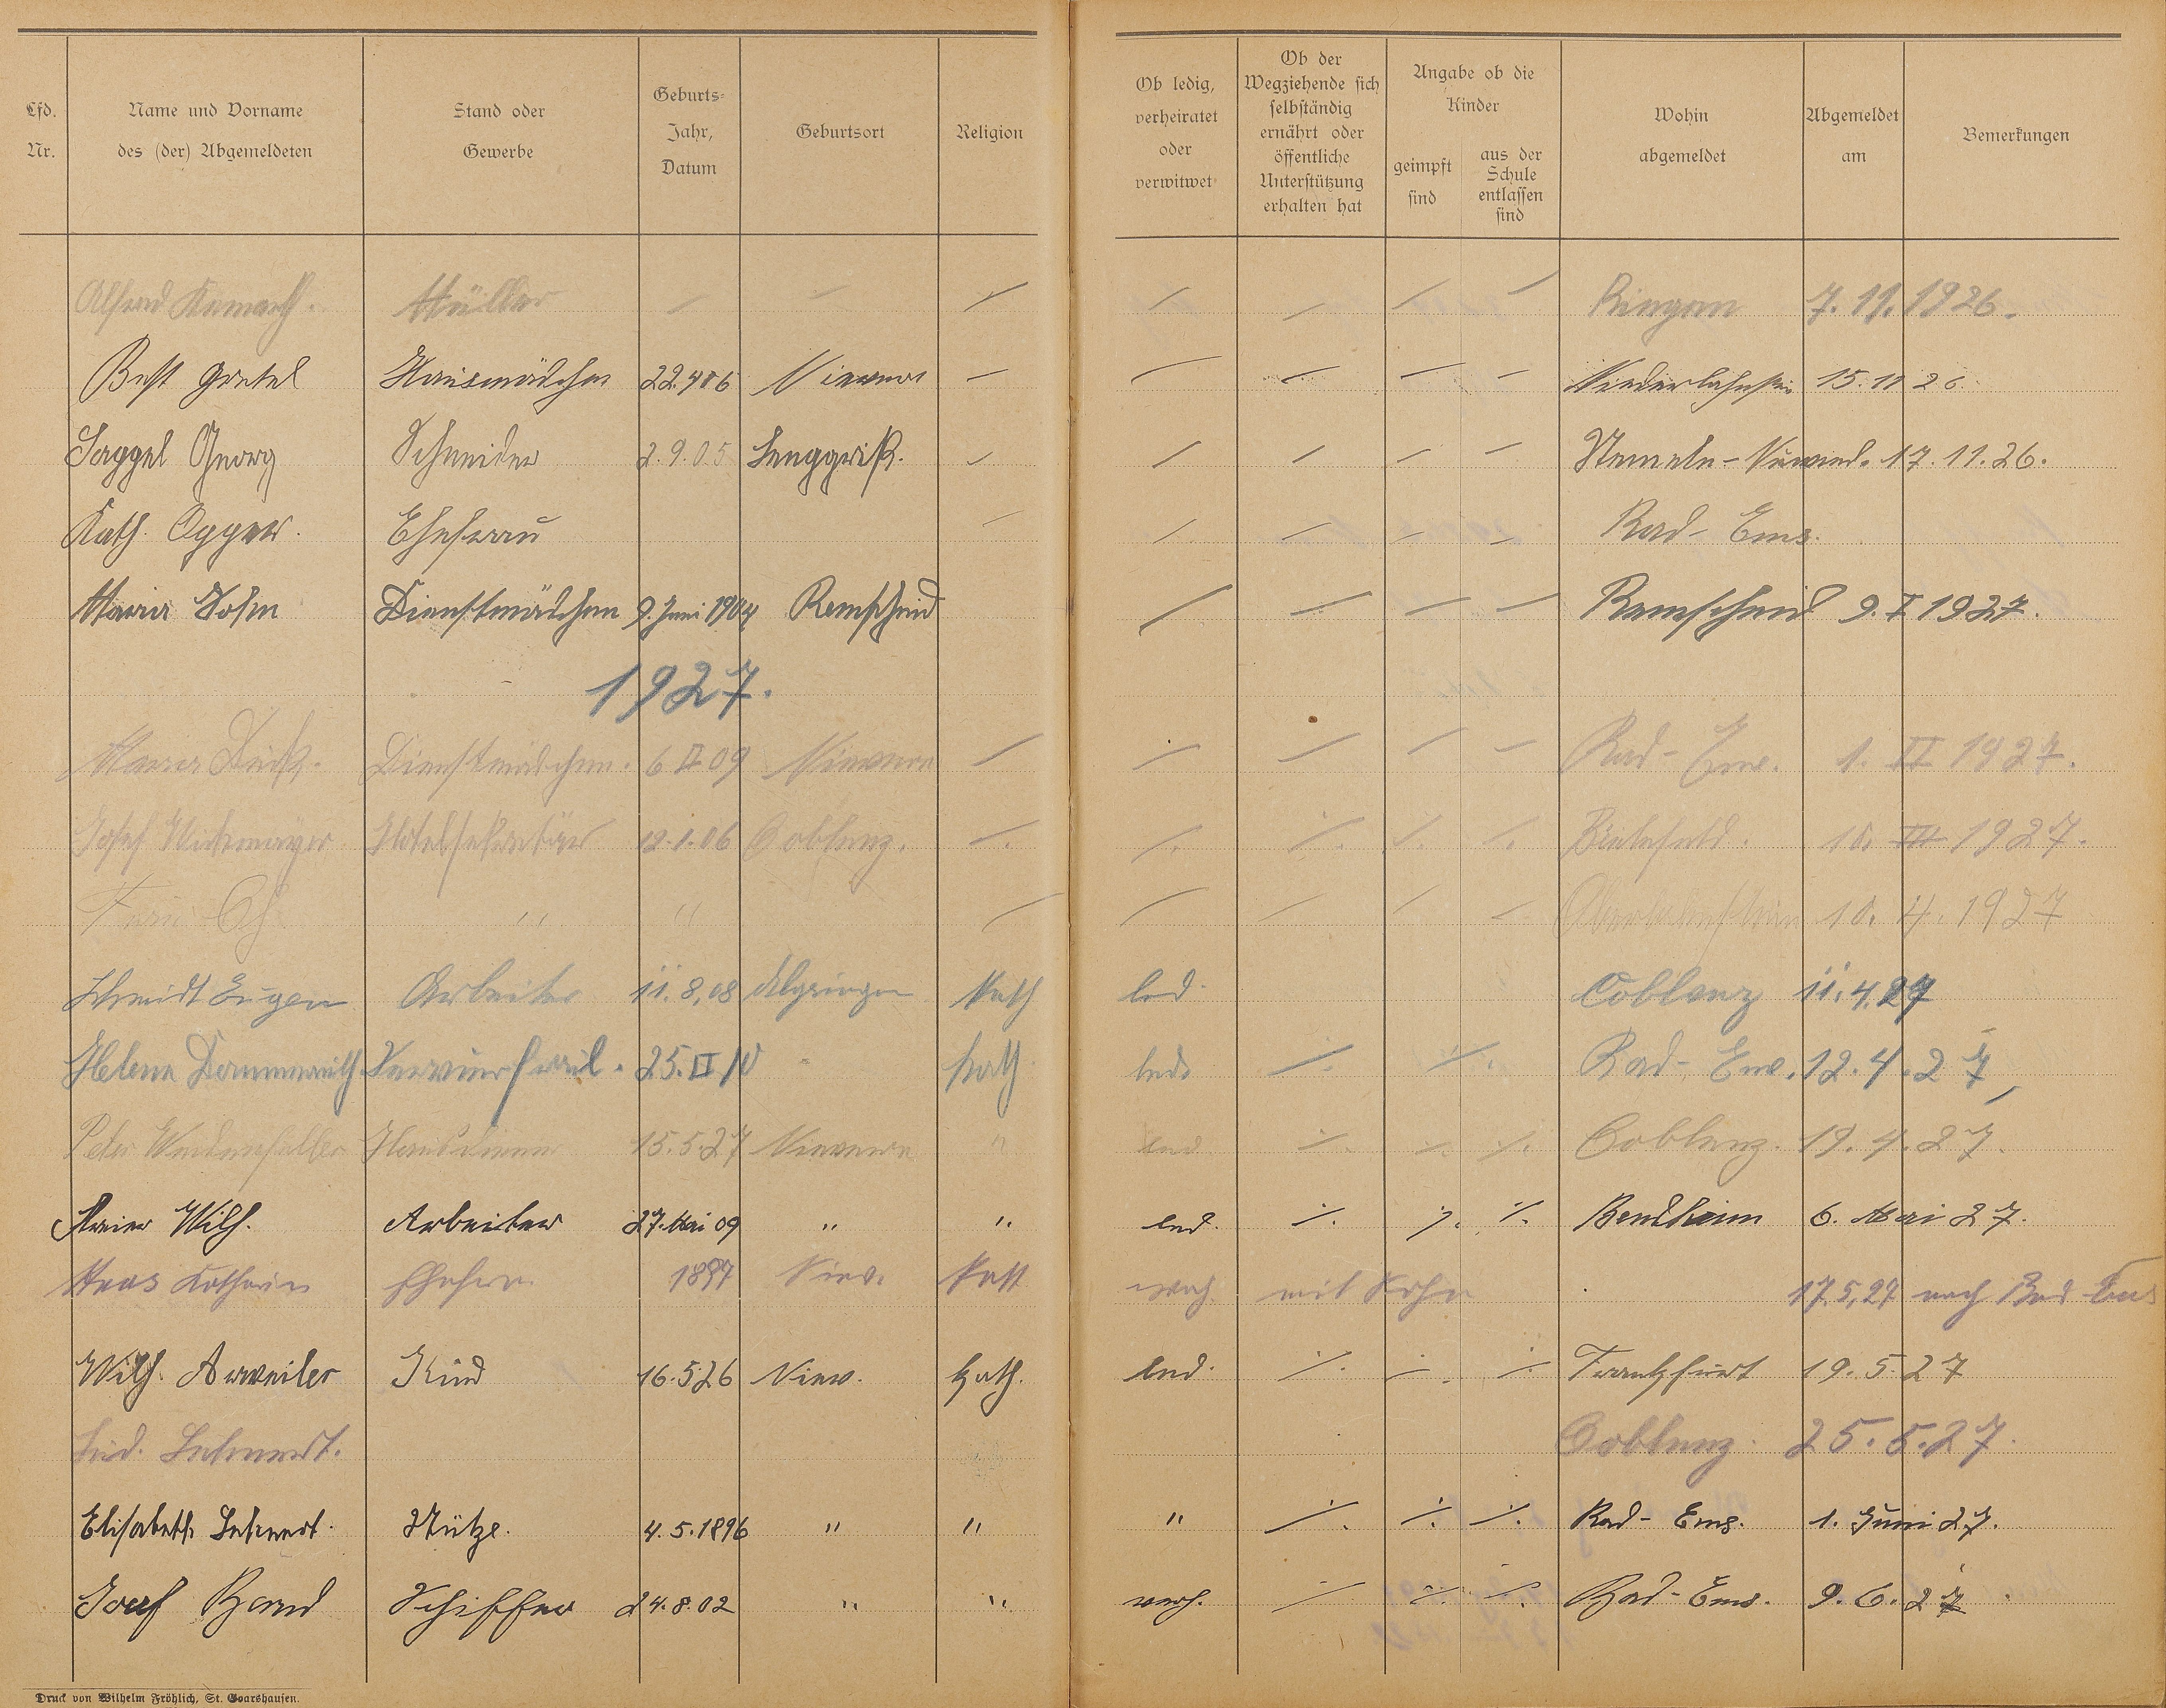 Lfd. Nr. Name und Vorname des (der) Abgemeldeten Stand oder Gewerbe Geburts-Jahr, Datum Geburtsort Religion Ob ledig, verheiratet oder verwitwet Ob der Wegziehende sich selbständig ernährt oder öffentliche Unterstützung erhalten hat Angabe ob die Kinder geimpft sind aus der Schule entlassen sind Wohin abgemeldet Abgemeldet am Bemerkungen
Alfred Müller 7.11.1926.
Best Gretel Hausmädchen 22.4 06 Nievern Niederlahnstein 15.11 26
Georg Schneider 2.9.05 17.11.26.
Kath. Ehefrau Bad-Ems.
Maria Dienstmädchen 9. Juni 1904 Remscheid Remscheid 9. I 1927.
1927.
Maria Dienstmädchen. 6 II 09 Nievern Bad-Ems. 1. II 1927.
Josef Hotelsekretär 12.1.06 Coblenz. Bielefeld. 10. III 1927.
Frau " " Oberlahnstein 10. 4. 1927
Schmidt Eugen Arbeiter 11.8,08 Kath led. Coblenz 11.4.27
Helena 25. II 10 Kath led. Bad-Ems. 12.4.27
Peter Weidenfeller Hausdiener 15.5.27 Nievern " led Coblenz. 19.4.27.
Wilh. Arbeiter 27. Mai 09 " " led. 6. Mai 27.
Haas Katharin Ehefrau 1897 Niev. Kath verh. mit Sohn 17.5,27 nach Bad Ems
Wilh. Arweiler Kind 16.5.26 Niev. Kath. led. Frankfurt 19.5.27
Coblenz. 25.5.27.
Elisabeth Stütze. 4.5.1896 " " " Bad-Ems. 1. Juni 27.
Josef Band Schiffer 24.8.02 " " verh. Bad-Ems. 9.6.27
Druck von Wilhelm Fröhlich, St. Goarshausen.